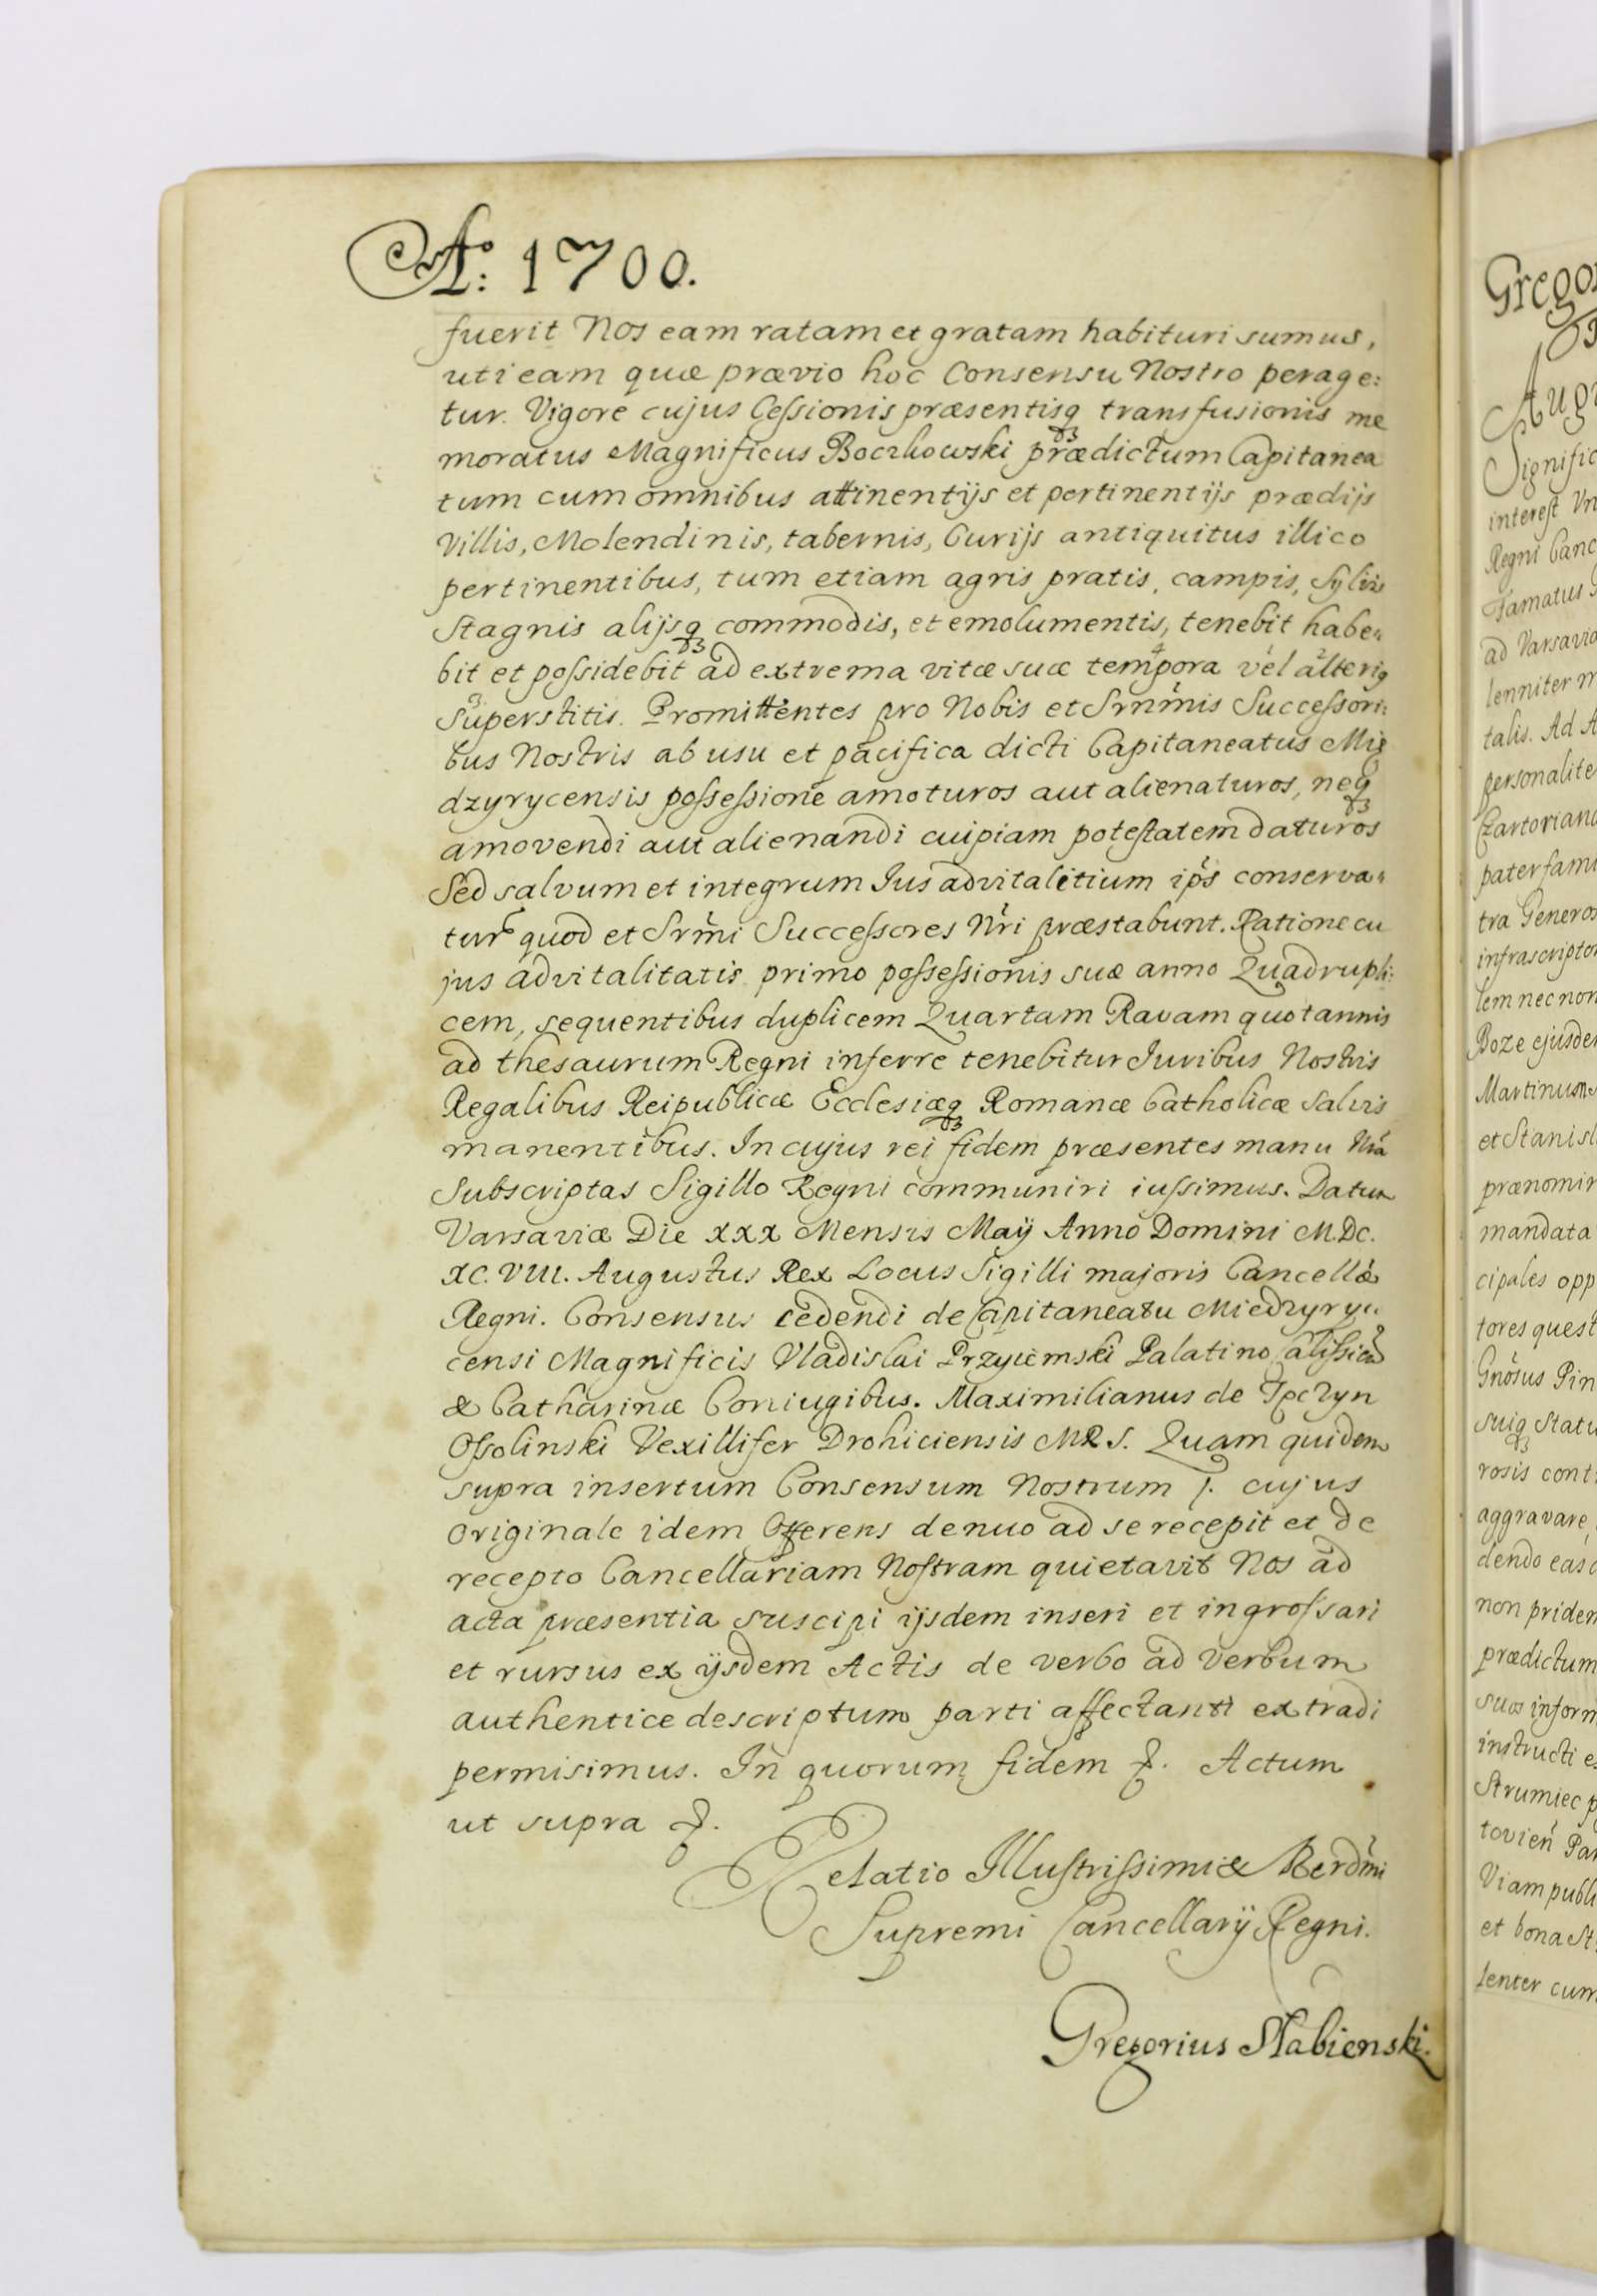 Aº: 1700.
fuerit Nos eam ratam et gratam habituri sumus,
uti eam quæ prævio hoc Consensu Nostro perage:
tur. Vigore cujus Cessionis præsentisq₃ transfusionis me
moratus Magnificus Boczkowski prædictum Capitanea
tum cum omnibus attinentijs et pertinentijs prædijs
Villis, Molendinis, tabernis, Curijs antiquitus illico
pertinentibus, tum etiam agris pratis, campis, Sylvis
Stagnis alijsq₃ commodis, et emolumentis, tenebit habe„
bit et possidebit ad extrema vitæ suæ tempora vel alterig
Superstitis. Promittentes pro Nobis et Srnmis Successori:
bus Nostris ab usu et pacifica dicti Capitaneatus Mię
dzyrycensis possessione amoturos aut alienaturos, neq₃
amovendi aut alienandi cuipiam potestatem daturos
Sed salvum et integrum Ius advitalitium ips conserva„
tur quod et Srmi Successores Nri præstabunt. Ratione cu
jus advitalitatis primo possessionis suæ anno Quadrupli:
cem, sequentibus duplicem Quartam Ravam quotannis
ad thesaurum Regni inferre tenebitur Iuribus Nostris
Regalibus Reipublicæ Ecclesiæq₃ Romanæ Catholicæ salvis
manentibus. In cujus rei fidem præsentes manu Nrã
Subscriptas Sigillo Regni communiri iussimus. Datum
Varsaviæ Die xxx Mensis Maÿ Anno Domini M.DC.
XC.VIII. Augustus Rex Locus Sigilli majoris Cancellæ
Regni. Consensus cedendi de Capitaneatu Miedzyry„
censi Magnificis Vladislai Przyiemski Palatino Calissien
& Catharinæ Coniugibus. Maximilianus de Tęczyn
Ossolinski Vexillifer Drohiciensis MRS. Quam quidem
supra insertum Consensum Nostrum p. cujus
originale idem Offerens denuo ad se recepit et de
recepto Cancellariam Nostram quietavit Nos ad
acta præsentia suscipi ijsdem inseri et ingrossari
et rursus ex ijsdem Actis de verbo ad verbum
authentice descriptum parti affectanti extradi
permisimus. In quorum fidem &. Actum
ut supra &.
Relatio Illustrissimi & Rerdmi
Supremi Cancellarÿ Regni.
Gregorius Słabienski.
Gregor
Augu
Signific
interest Vn
Regni Canc
Famatus
ad Varsavia
lenniter m
talis. Ad A
personalite
Czartoriana
pater fami
tra Generos
infrascriptor
lem nec non
Boze ejusdem
Martinum
et Stanisl
prænomin
mandata
cipales opp
tores quest
Gnosus Pin
suiq₃ statu
rosis cont
aggravare,
dendo eas
non pridem
prædictum
suos inform
instructi e
Strumiec p
tovien Pa
Viam publi
et bona St
lenter cum